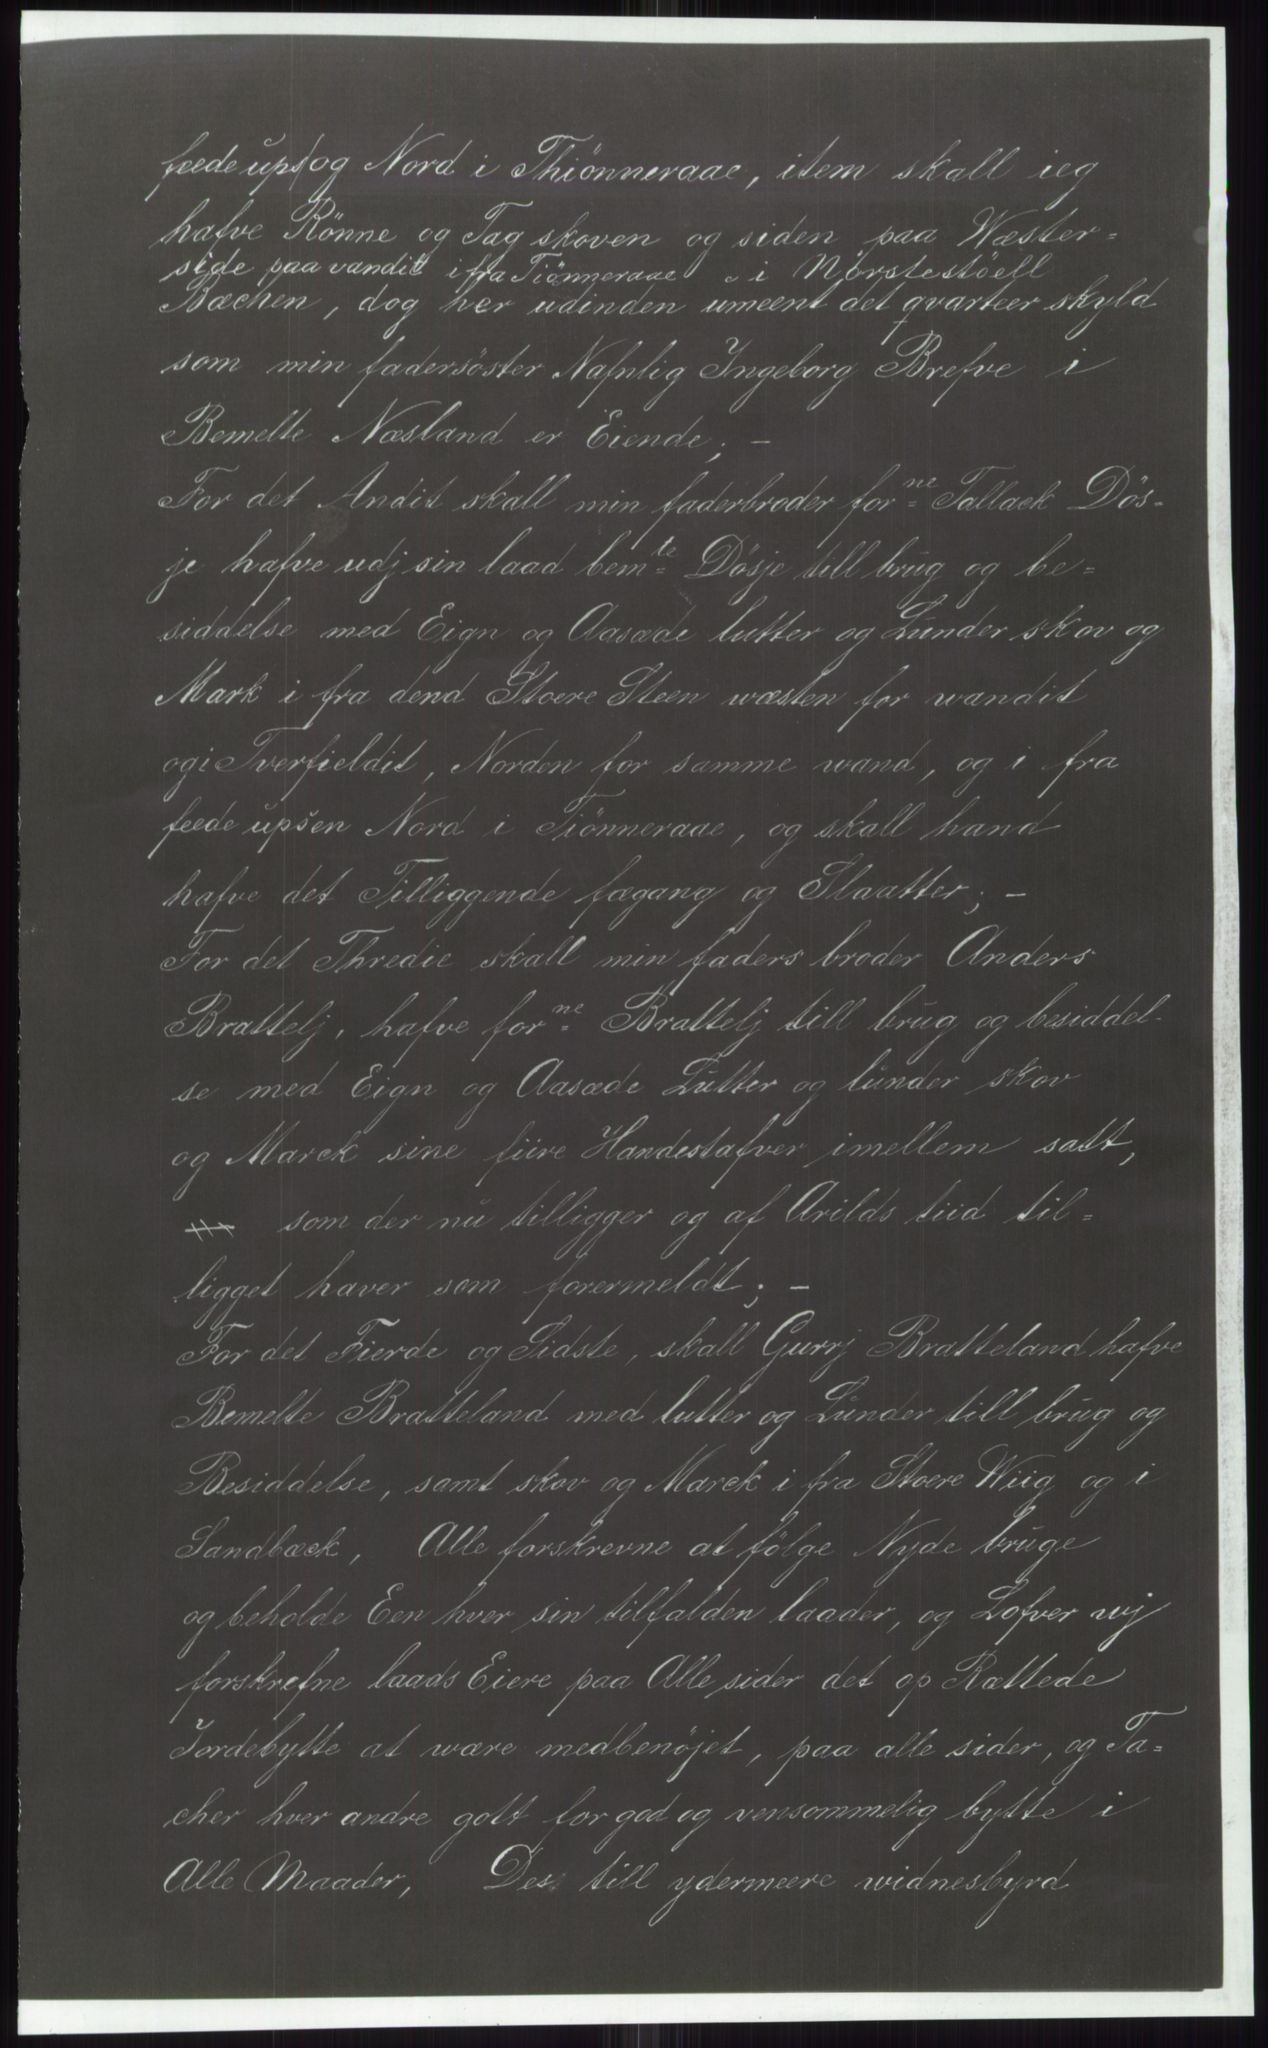 feede ups og Nord i Thiönneraae, item skall ieg
hafve Rönne og Tag skoven og siden paa Wæster=
side paa vandit i fra Tiönneraae i Nörstestöell
Bæchen, dog her udinden umeent det qvarteer skyld
som min fadersöster Nafnlig Ingeborg Brefve i
Bemelte Næsland er Eiende; -
For det Andit skall min faderbroder forne Tallack Dös-
je hafve udj sin laad bemte Dösje till brug og be=
siddelse med Eign og Aasæde lutter og Lunder skov og
Mark i fra dend Stoere Steen wæsten for wandit
og i Tverfieldit, Norden for samme wand, og i fra
feede upsen Nord i Tiönneraae, og skall hand
hafve det Tilliggende fægang og Slaatter; -
For det Thredie skall min faders broder Anders
Brattelj, hafve forne Brattelj till brug og besiddel-
se med Eign og Aasæde Lutter og lunder skov
og Marck sine fiire Handestafver imellem satt,
som der nu tilligger og af Arilds tiid til=
ligget haver som forermeldt; -
For det Fierde og Sidste, skall Gurrj Bratteland hafve
Bemelte Bratteland med lutter og Lunder till brug og
Besiddelse, samt skov og Marck i fra Stoere Wiig og i
Sandbæck, Alle forskrevne at fölge Nyde bruge
og beholde Een hver sin tilfalden laader, og Lofver wj
forskrefne laads Eiere paa Alle sider det op Rættede
Jordebytte at wære medbenöjet, paa alle sider, og Ta=
cher hver andre gott for god og vensommelig bytte i
Alle Maader, Des till ydermeere widnesbyrd